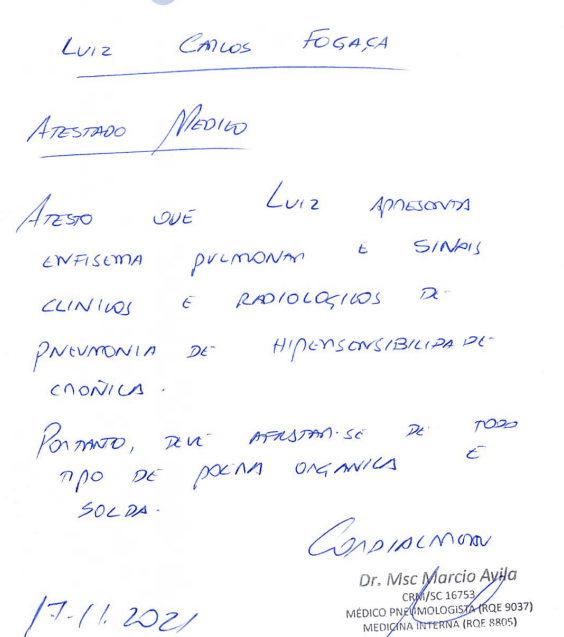 LUIZ CARLOS FOGAÇA
ATESTADO MEDICO
ATESTO QUE LUIZ APRESENTA
ENFISEMA PULMONAR E SINAIS
CLINICOS E RADIOLOGICOS DE
PNEUMONIA DE HIPERSENSIBILIDADE
CRONICA.
PORTANTO, DEVE AFASTAR-SE DE TODO
TIPO DE POEIRA ORGANICA E
SOLDA.
CORDIALMENTE
Dr. Msc Marcio Avila
CRM/SC 16753
MÉDICO PNEUMOLOGISTA (RQE 9037)
MEDICINA INTERNA (RQE 8805)
17.11.2021